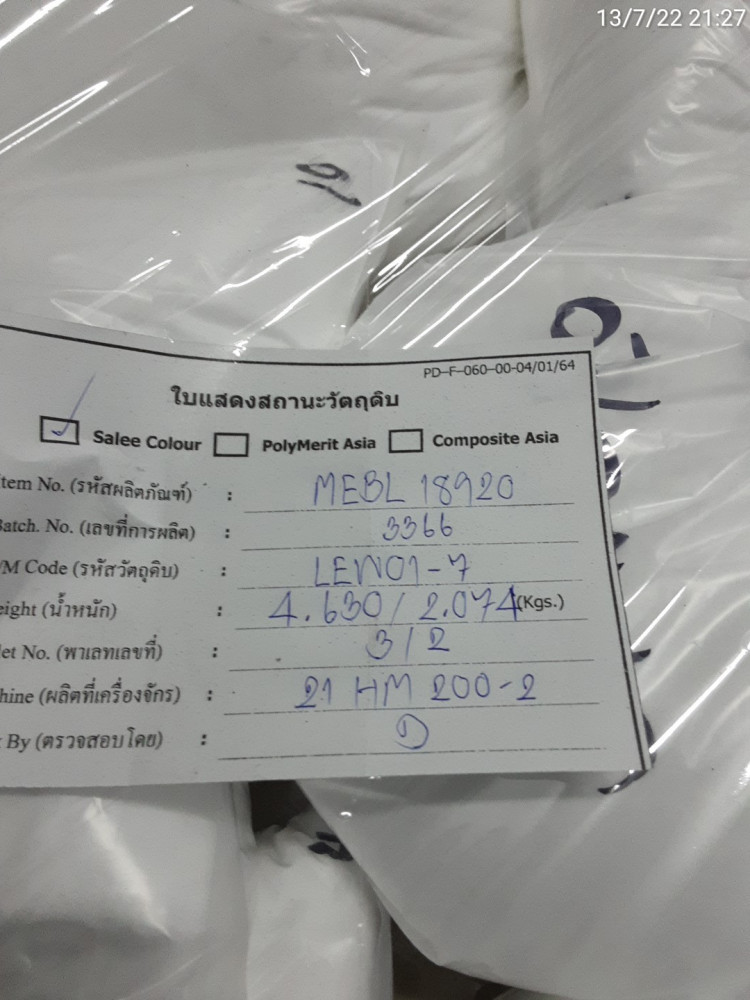 13/7/22 21:27
PD-F-060-00-04/01/64
ใบแสดงสถานะวัตถุดิบ
Salee Colour PolyMerit Asia Composite Asia
tem No. (รหัสผลิตภัณฑ์) : MEBL 18920
Batch. No. (เลขที่การผลิต) : 3366
/M Code (รหัสวัตถุดิบ) : LEW01-7
eight (น้ำหนัก) : 4.630/2.074 (Kgs.)
let No. (พาเลทเลขที่) : 3/2
hine (ผลิตที่เครื่องจักร) : 21 HM 200-2
By (ตรวจสอบโดย) :